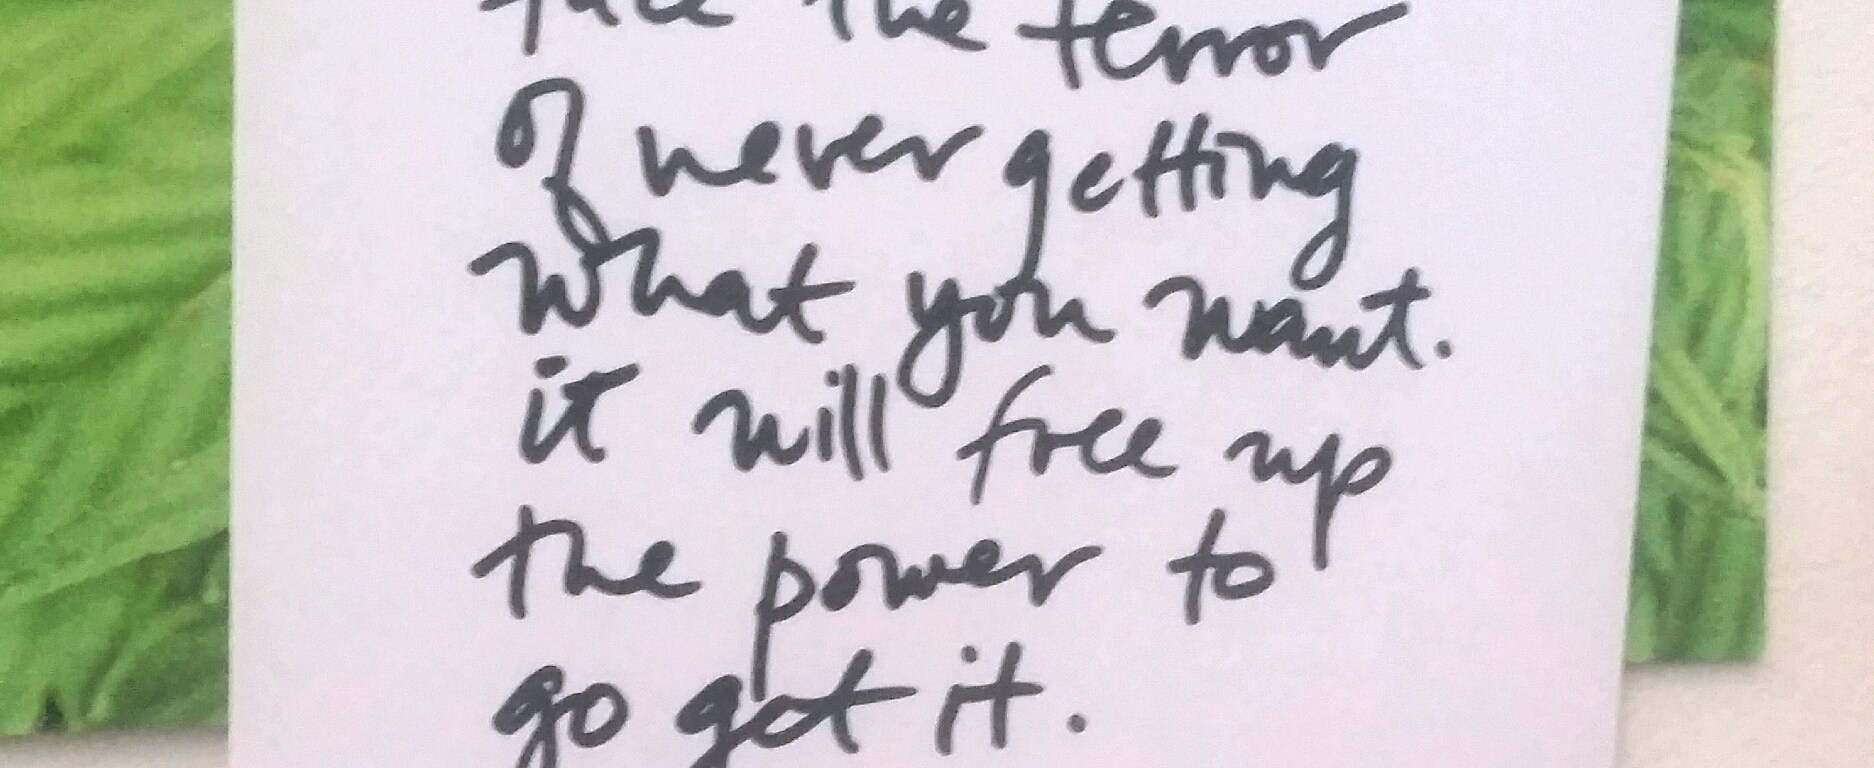 face the terror
of never getting
what you want.
it will free up
the power to
go get it.